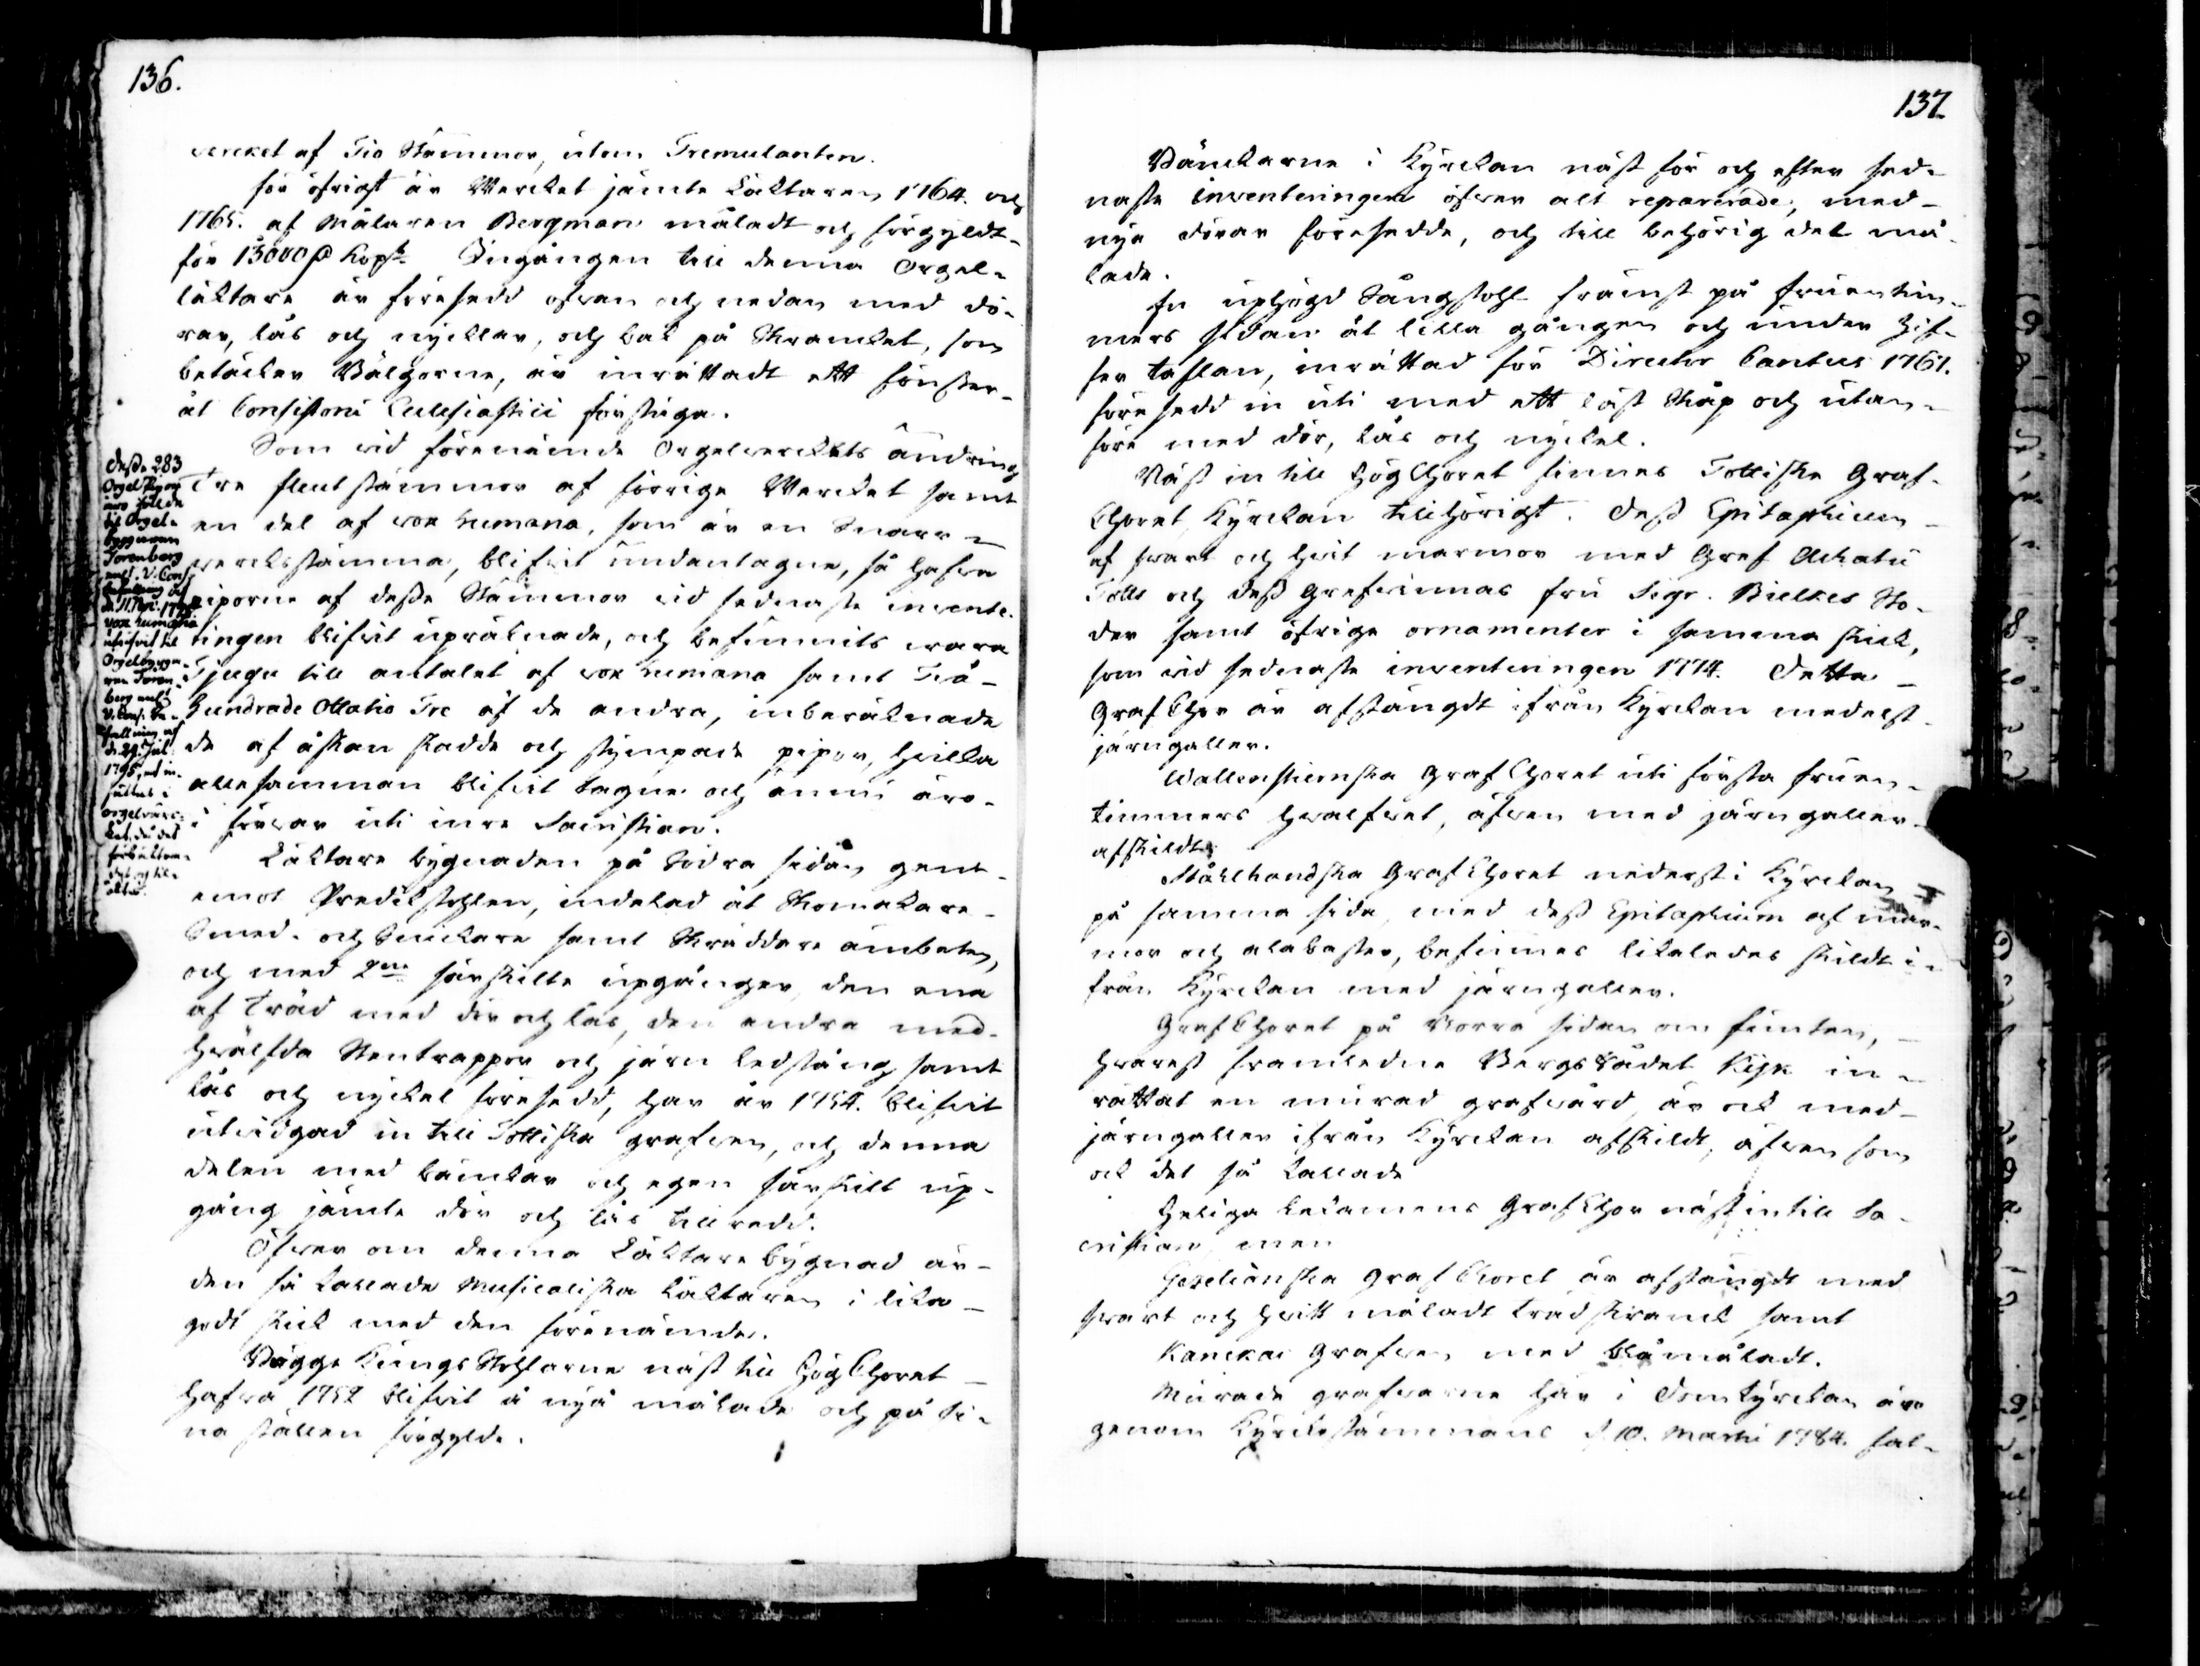 136.
vercket af Tio Stämmor, utom Tremulanten.
för öfrigt är Wercket jämte Läktaren 1764. och
1765. af Målaren Bergman måladt och förgyldt
för 13000 Kopt. Ingången till denna Orgel-
läktare är försedd ofvan och nedan med dö-
rar, lås och nycklar, och bak på Skrancket, som
betäcker Bälgorne, är inrättadt ett fönster
åt Consistorii Ecclesiastici förstuga.
Som vid förenämnde Orgelverckets ändring
Tre fleut stämmor af förrige Wercket samt
en del af vox humana, som är en Snarr-
vercksstämma, blifvit undantagne, så hafva
piporne af desse Stämmor vid sednaste invente-
ringen blifvit upräknade, och befunnits vara
Tjugu till antalet af vox humana samt Två-
hundrade Ottatio Tre af de andra, inberäknade
de af åskan skadde och stympade pipor, hvilka
allesamman blifvit tagne och ännu äro
i förvar uti inre Sacristian.
Desse 283
Orgel Pipor
äro sålde
til Orgel-
byggaren
Torenberg
enl. V. Cons.
befallning af
d. 11. 1795
vox humana
utgifvit til
Orgelbygga-
ren Toren-
berg enligt
V. Cons. be-
fallning af
d. 29. Jul.
1795, at in-
sättas i
orgelverc-
ket, då det
förbättra-
des och til-
öktes.
Läktare bygnaden på Södra sidan gent-
emot Predikstohlen, indelad åt Skomakare
Smed- och Snickare samt Skräddare ämbeten,
och med 2ne särskilte upgånger, den ena
af Träd med dör och lås, den andra med
hvälfda Stentrappor och järn ledstång samt
lås och nyckel försedd, har år 1754. blifvit
utvidgad in till Tottiska grafven, och denna
delen med bänckar och egen särskilt up-
gång jämte dör och lås tillredd.
Öfver om denna Läktare bygnad är
den så kallade Musicaliska Läktaren i lika
godt skick med den förenämnde.
Bägge Kungs Stohlarne näst till Högchoret
hafva 1752 blifvit å nyå målade och på si-
na ställen förgylde.
137
Bänckarne i Kyrckan näst för och efter sed-
naste inventeringen öfver alt reparerade, med
nya dörar försedde, och till behörig del må-
lade.
En uphögd Sångstohl främst på fruentim-
mers sidan åt lilla gången och under Zif-
fer taflan, inrättad för Director Cantus 1761.
försedd in uti med ett låst Skåp och utan-
före med dör, lås och nyckel.
Näst in till Högchoret finnes Tottiske Graf-
choret Kyrckan tillhörigt. Dess Epitaphium
af svart och hvit marmor med Gref Achatii
Totts och dess Grefvinnas fru Sigr. Bielkes Sto-
der samt öfrige ornamenter i samma skick,
som vid sednaste inventeringen 1774. Detta
Grafchor är afstängdt ifrån Kyrckan medelst
järngaller.
Wallenstiernska Grafchoret uti första fruen-
timmers hvalfvet, äfven med järngaller
afskildt.
Stålhandska Grafchoret nederst i Kyrckan
på samma sida, med dess Epitaphium af mar-
mor och alabaster, befinnes likaledes skildt i-
från Kyrckan med järngaller.
Grafchoret på Norra sidan om funten,
hvarest framledne Bergsrådet Kijk in-
rättat en murad grafvård, är ock med
järngaller ifrån Kyrckan afskildt, äfven som
ock det så kallade
Heliga Lekamens Grafchor näst intill Sa-
cristian, men
Gezelianska Grafchoret är afstängdt med
svart och hvitt måladt trädskranck samt
Kanckas Grafven med blåmåladt.
Murade grafvarne här i Domkyrckan äro
genom Kyrckostämmans d. 10. Martii 1784. fat-